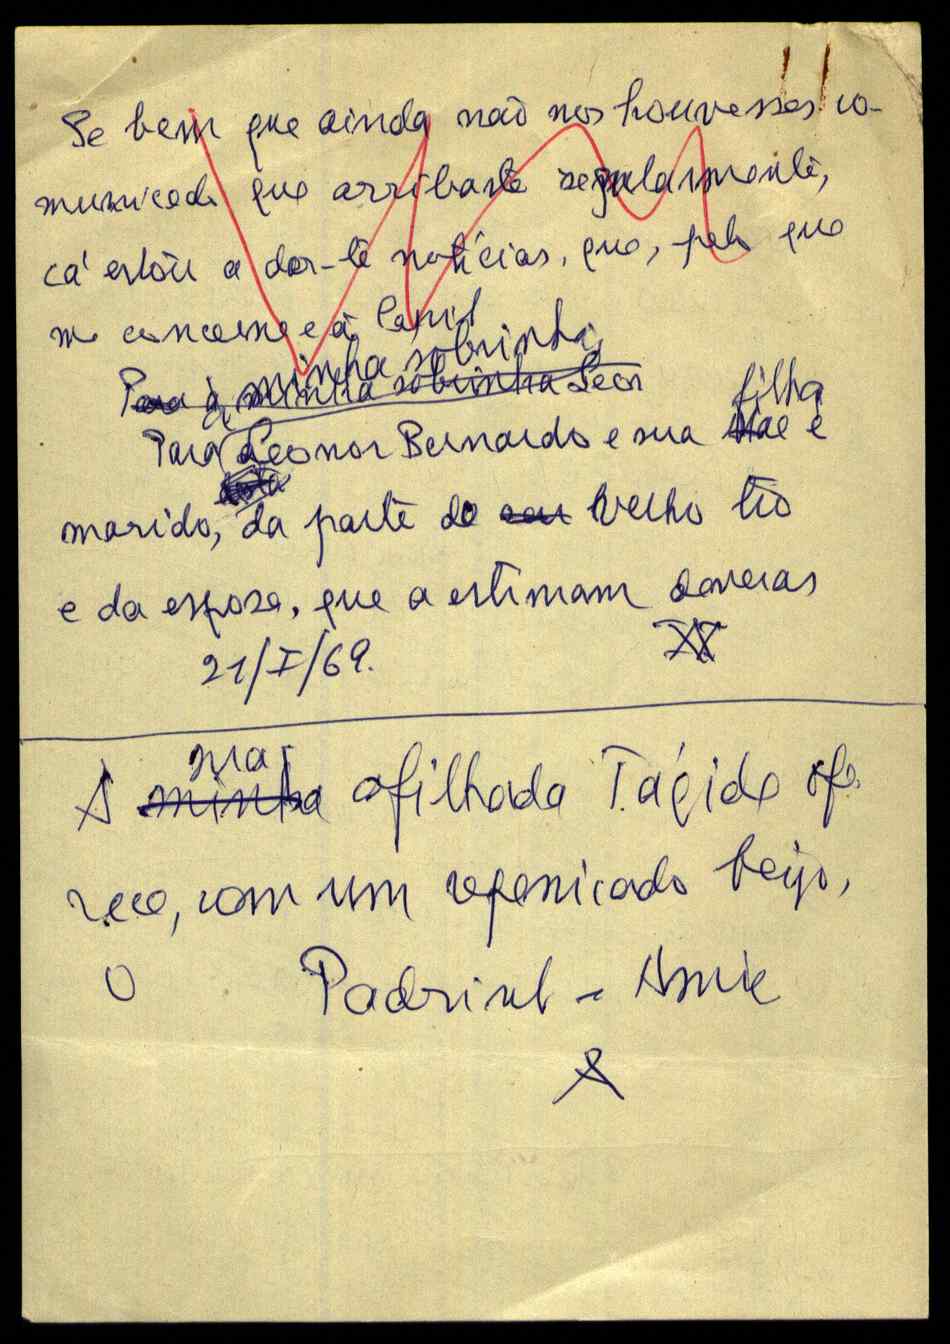 Se bem que ainda não nos houvesses co-
municado que arribaste regularmente,
cá estou a dar-te notícias, que, pelo que
me concerne e à
minha sobrinha
Para à minha sobrinha Leon
filha
Para Leonor Bernardo e sua Mãe e
marido, da parte do seu velho tio
e da esposa, que a estimam deveras
21/I/69.
sua
A minha afilhada Tágide ofe
rece, com um repenicado beijo,
O Padrinho -